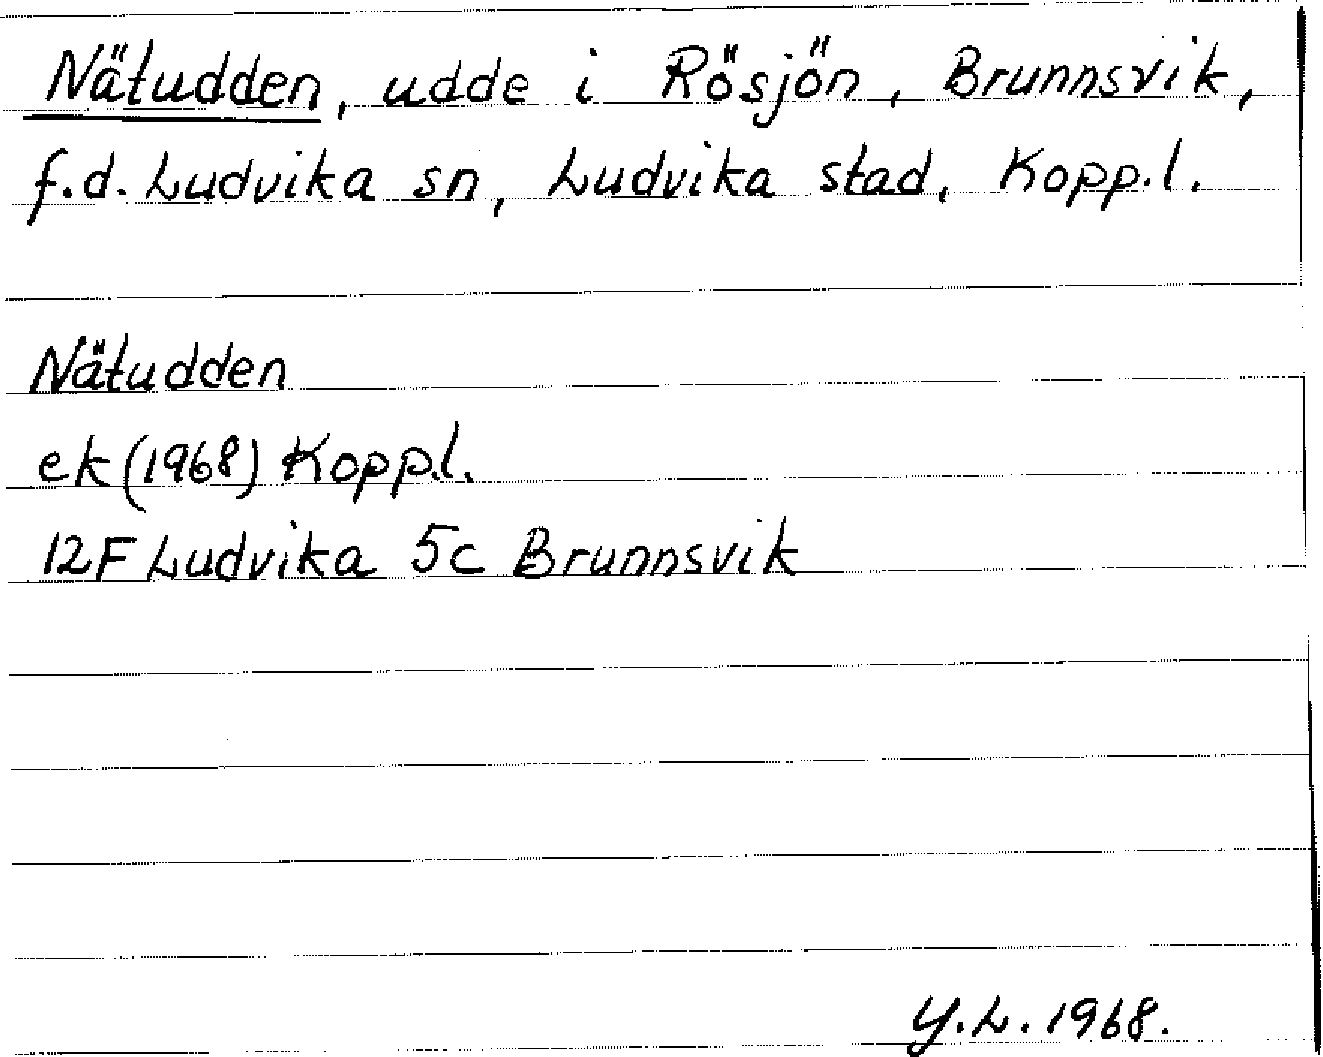 Nätudden, udde i Rösjön, Brunnsvik,
f.d. Ludvika sn, Ludvika stad, Kopp.l.
Nätudden
ek (1968) Kopp.l.
12F Ludvika 5c Brunnsvik
Y.L. 1968.